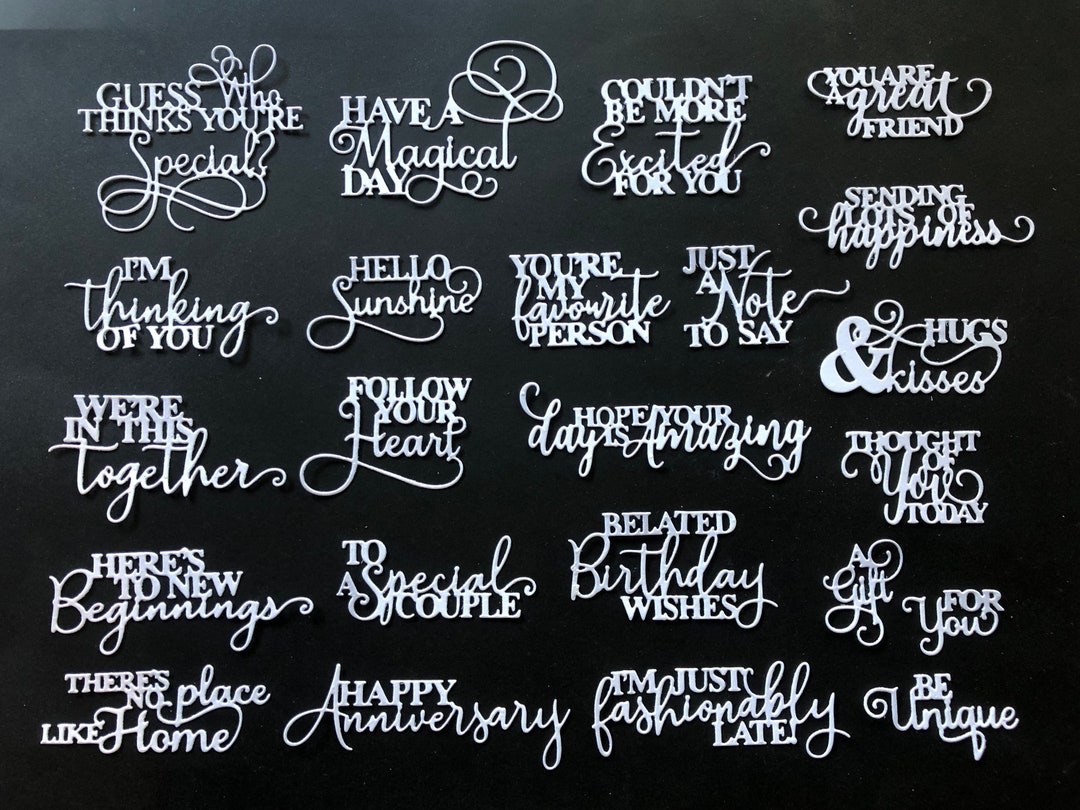 GUESS Who
THINKS YOU'RE
Special?
HAVE A
Magical
DAY
COULDN'T
BE MORE
Excited
FOR YOU
YOU ARE
A great
FRIEND
SENDING
LOTS OF
happiness
I'M
thinking
OF YOU
HELLO
Sunshine
YOU'RE
MY
favourite
PERSON
JUST
A Note
TO SAY
& HUGS
kisses
WE'RE
IN THIS
together
FOLLOW
YOUR
Heart
HOPE YOUR
day IS Amazing
THOUGHT
OF
You
TODAY
HERE'S
TO NEW
Beginnings
TO
A Special
COUPLE
BELATED
Birthday
WISHES
A
Gift
FOR
You
THERE'S
NO place
LIKE Home
HAPPY
Anniversary
I'M JUST
fashionably
LATE!
BE
Unique